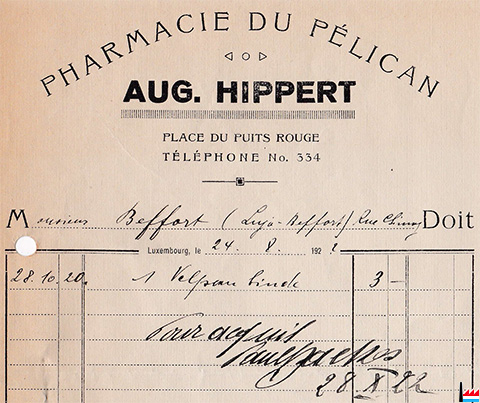 PHARMACIE DU PÉLICAN
AUG. HIPPERT
PLACE DU PUITS ROUGE
TÉLÉPHONE No. 334
Monsieur Beffort (Luja-Beffort) Rue Chimay Doit
Luxembourg, le 24. 8. 1922
28. 10. 20. 1 Velpeau binde 3 —
Pour acquit
28 X 22